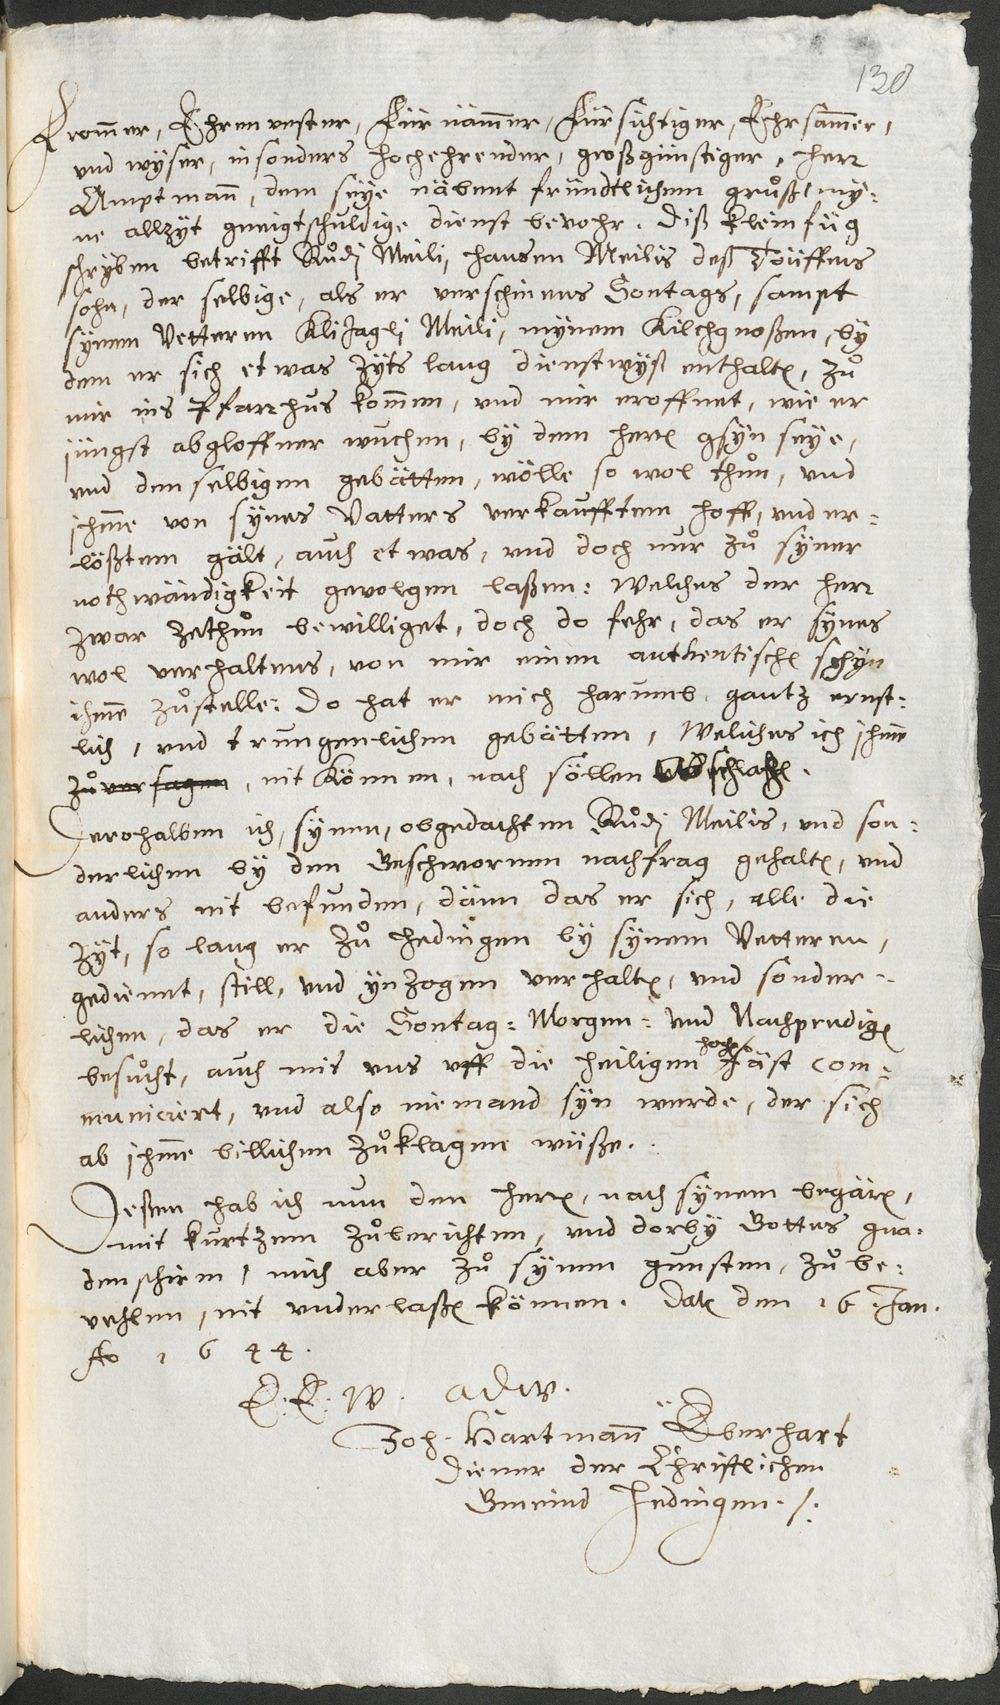 130
Frommer, Ehrenvester, Fürnämmer, Fürsichtiger, Ehrsammer,
und wyser, insonders hochehrender, großgünstiger, herr
Amptmañ, dem seÿe näbent fründtlichem grůß, my¬
ne allzÿt gneigtschuldige dienst bevohr. Diß kleinfüg
schryben betrifft Růdj Meili, hansen Meilis deß Töüffers
sohn, der selbige, als er verschinens Sontags, sampt
synem Vetteren Kli Jagli Meili, mynem Kilchgnoßen, by
dem er sich etwas zÿts lang dienstwÿß enthalten, zů
mir ins Pfarrhus kommen, und mir eroffnet, wie er
jüngst abgloffner wuchen, bÿ dem herren gsÿn seÿe,
und denselbigen gebätten, wölle so wol thůn, und
ihme von synes Vatters verkaufftem hoff, und er¬
lößtem gält, auch etwas, und doch nur zů syner
nothwändigkeit gevolgen laßen: Welches der herr
zwar zethůn bewilliget, doch do fehr, das er synes
wol verhaltens, von mir einen authentischen schyn
ihme zůstelle: Do hat er mich harumb gantz ernst¬
lich, und trungenlichen gebätten, Weliches ich ihme
zůversagen, nit können, nach söllen abschlahen.
Derohalben ich, synen, obgedachten Růdj Meilis, und son¬
derlichen by den Geschwornen nachfrag gehalten, und
anders nit befunden, dänn das er sich, alle die
Zÿt, so lang er zů Hedingen bÿ synem Vetteren,
gedienet, still, und ÿnzogen verhalten, und sonder¬
lichen, das er die Sontag= Morgen= und Nachpredigen
besůcht, auch mit uns uff die heiligen hochen Fäst com¬
municiert, und also niemand syn werde, der sich
ab ihme billichen zůklagen wüße.
Deßen hab ich nun den herren, nach synem begären,
mit kurtzem zůberichten, und dorbÿ Gottes gna¬
denschirm, mich aber zů synen gunsten, zů be¬
vehlen, nit underlaßen können. Datum den 16. Jan.
Ao 1644.
E. E. W. adw.
Joh. Hartmañ Eberhart
Diener der Christlichen
Gmeind Hedingen.